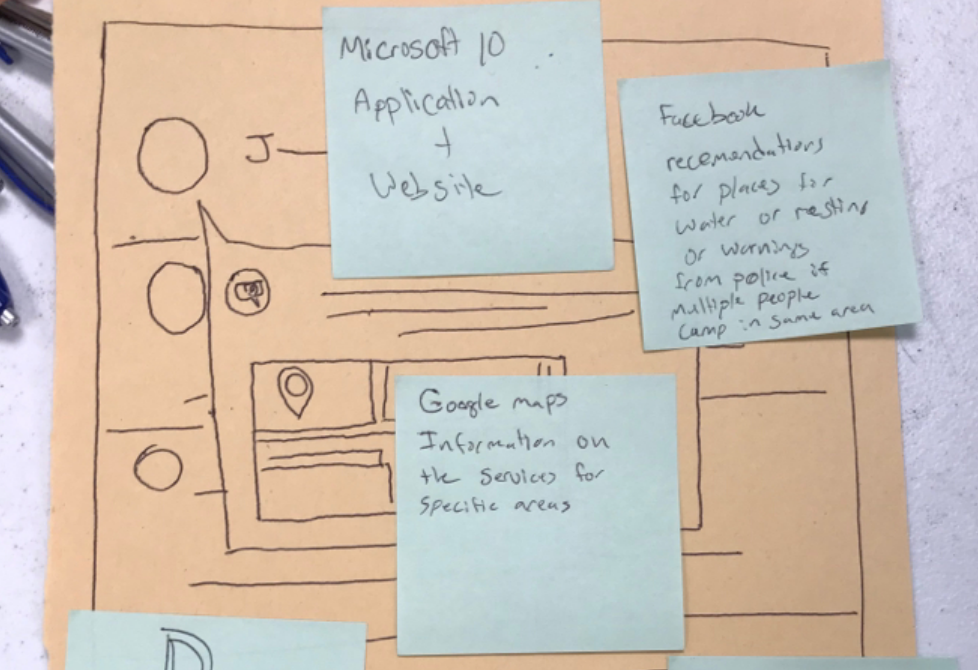 Microsoft 10
Application
+
Website
Facebook
recomendations
for places for
water or resting
or warnings
from police if
multiple people
camp in same area
J
Google maps
Information on
the services for
specific areas
D